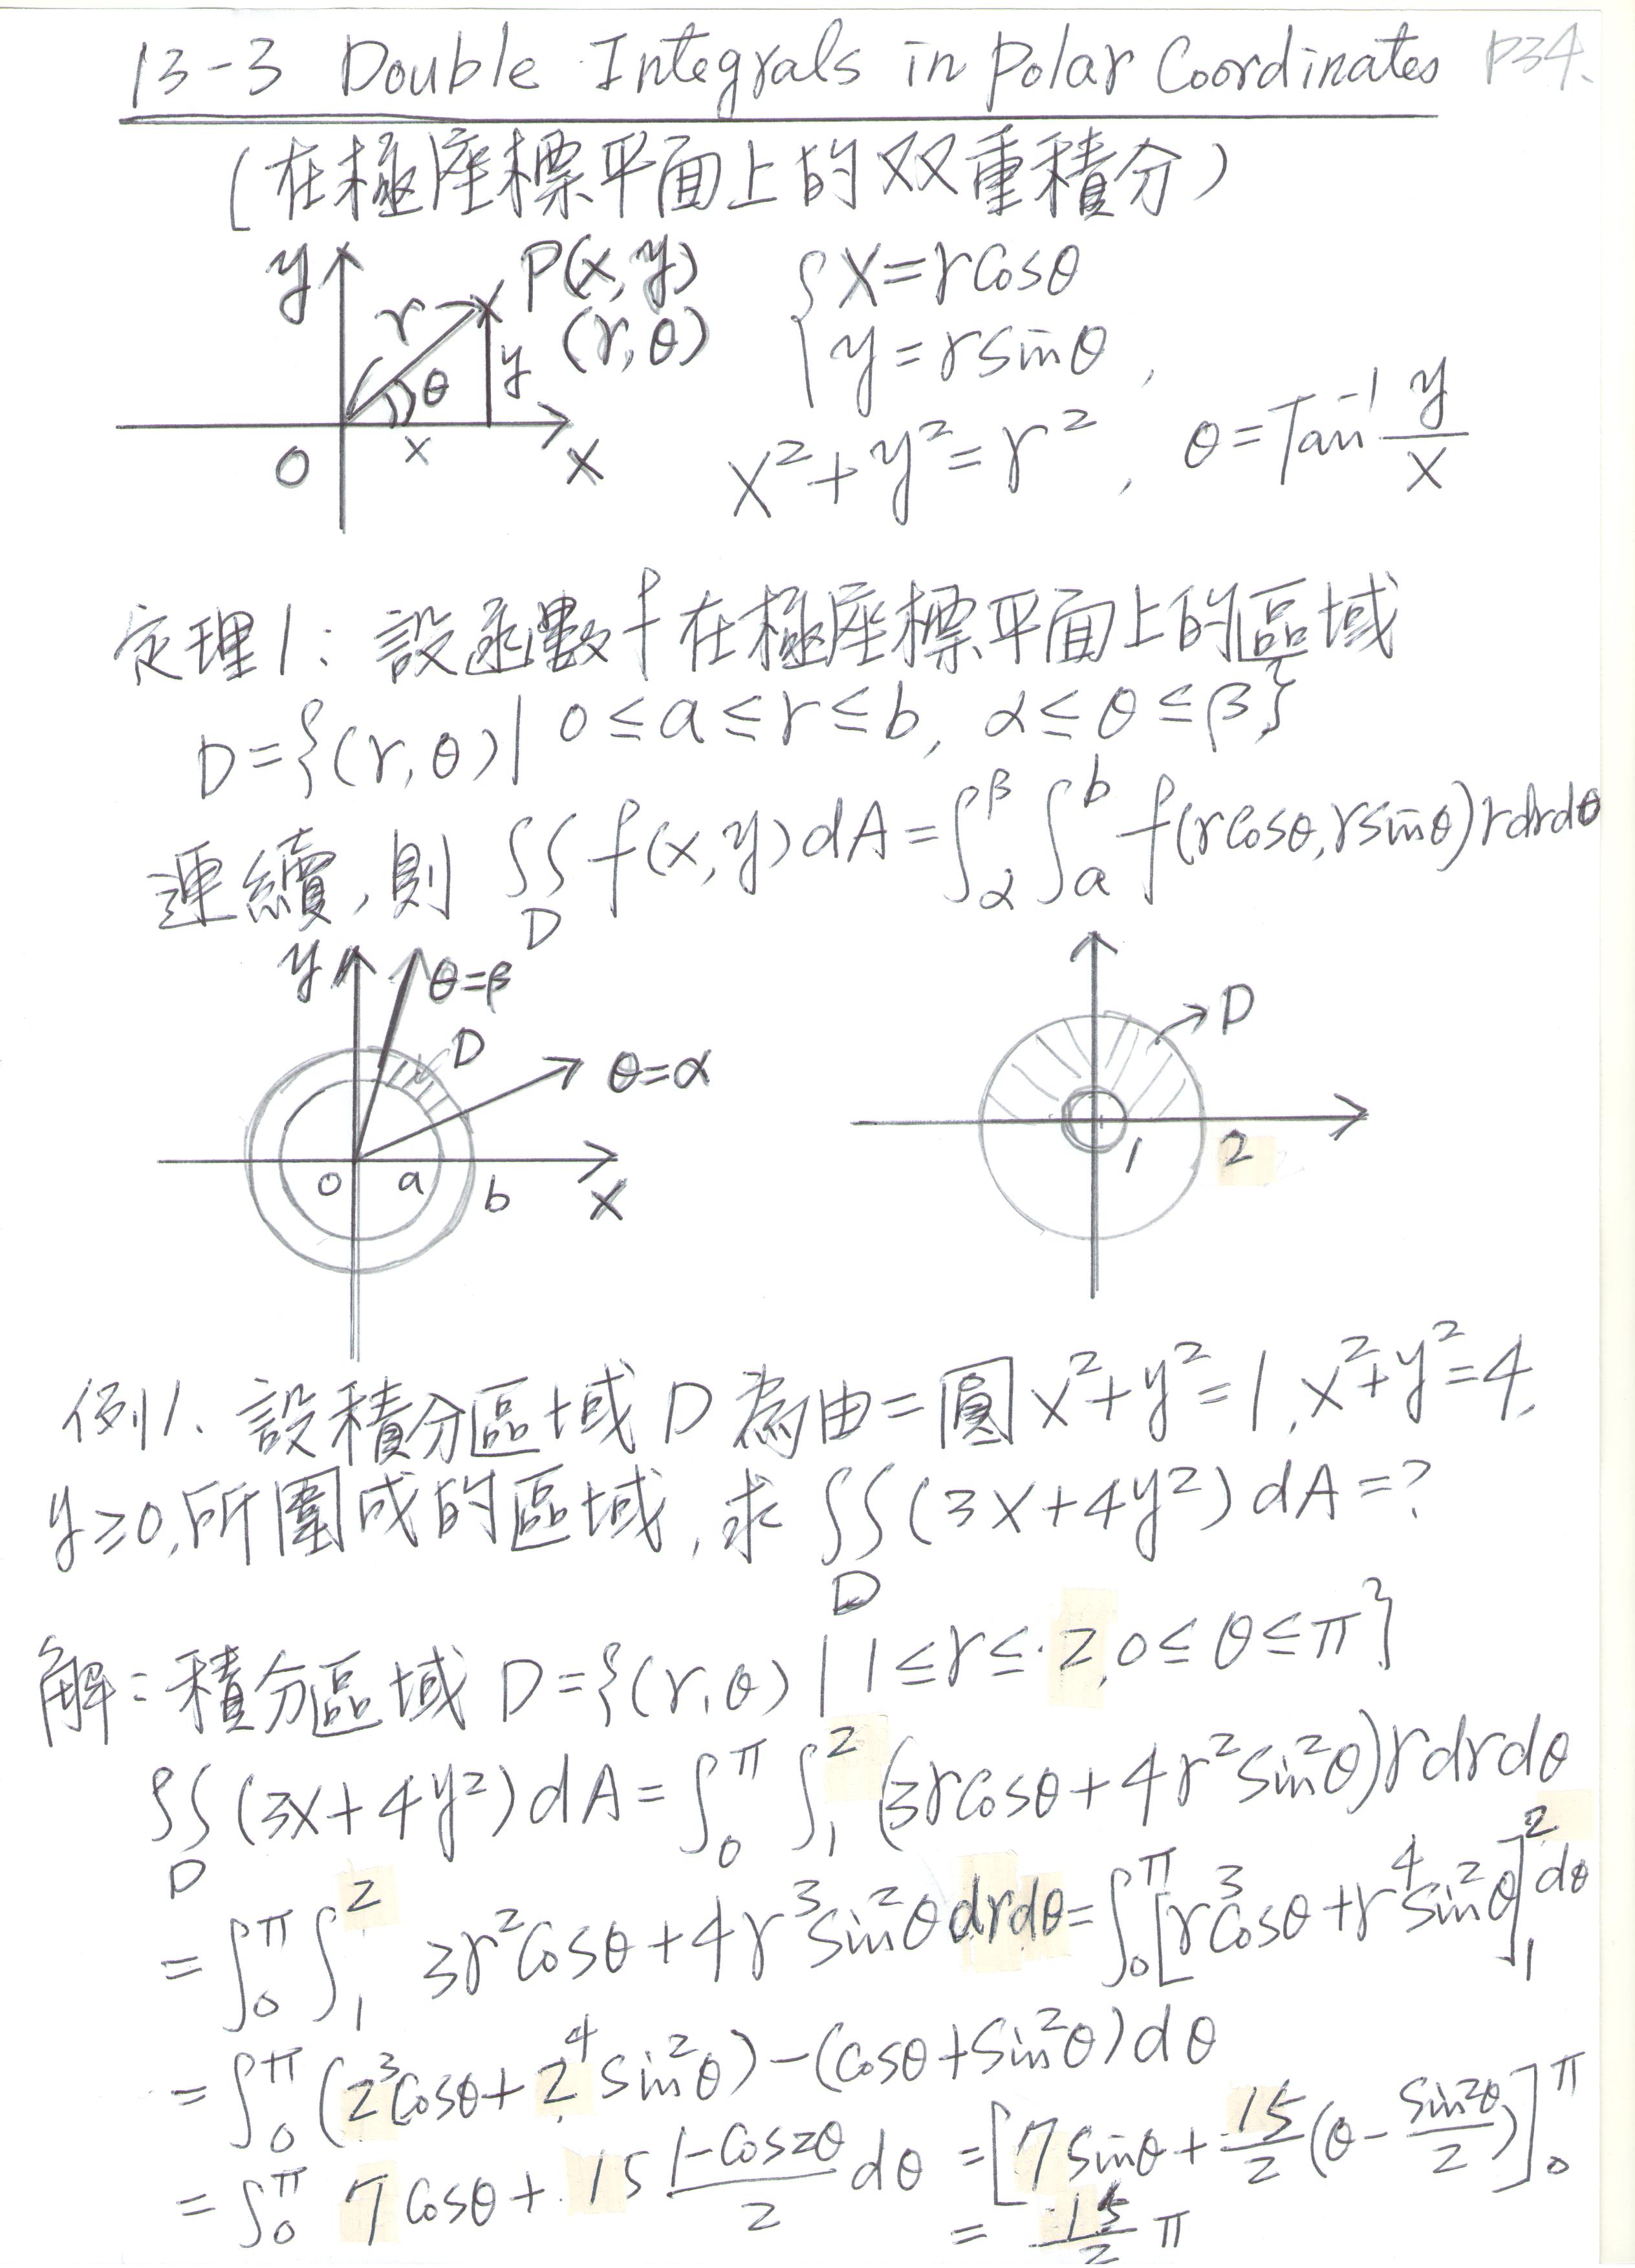 13-3 Double Integrals in Polar Coordinates P34.
(在極座標平面上的双重積分)
y P(x, y) { x = r cosθ
r (r, θ) y = r sinθ ,
θ y
O x x x² + y² = r² , θ = Tan⁻¹ y/x
定理1: 設函數 f 在極座標平面上的區域
D = {(r, θ) | 0 ≤ a ≤ r ≤ b, α ≤ θ ≤ β}
連續, 則 ∬_D f(x, y) dA = ∫_α^β ∫_a^b f(r cosθ, r sinθ) r dr dθ
y θ=β
D θ=α
O a b x
D
1 2
例1. 設積分區域 D 為由二圓 x² + y² = 1, x² + y² = 4,
y ≥ 0, 所圍成的區域, 求 ∬_D (3x + 4y²) dA = ?
解: 積分區域 D = {(r, θ) | 1 ≤ r ≤ 2, 0 ≤ θ ≤ π}
∬_D (3x + 4y²) dA = ∫_0^π ∫_1^2 (3r cosθ + 4r² sin²θ) r dr dθ
= ∫_0^π ∫_1^2 3r² cosθ + 4r³ sin²θ dr dθ = ∫_0^π [r³ cosθ + r⁴ sin²θ]_1^2 dθ
= ∫_0^π (2³ cosθ + 2⁴ sin²θ) - (cosθ + sin²θ) dθ
= ∫_0^π 7 cosθ + 15 (1 - cos2θ)/2 dθ = [7 sinθ + 15/2 (θ - sin2θ/2)]_0^π
= 15/2 π